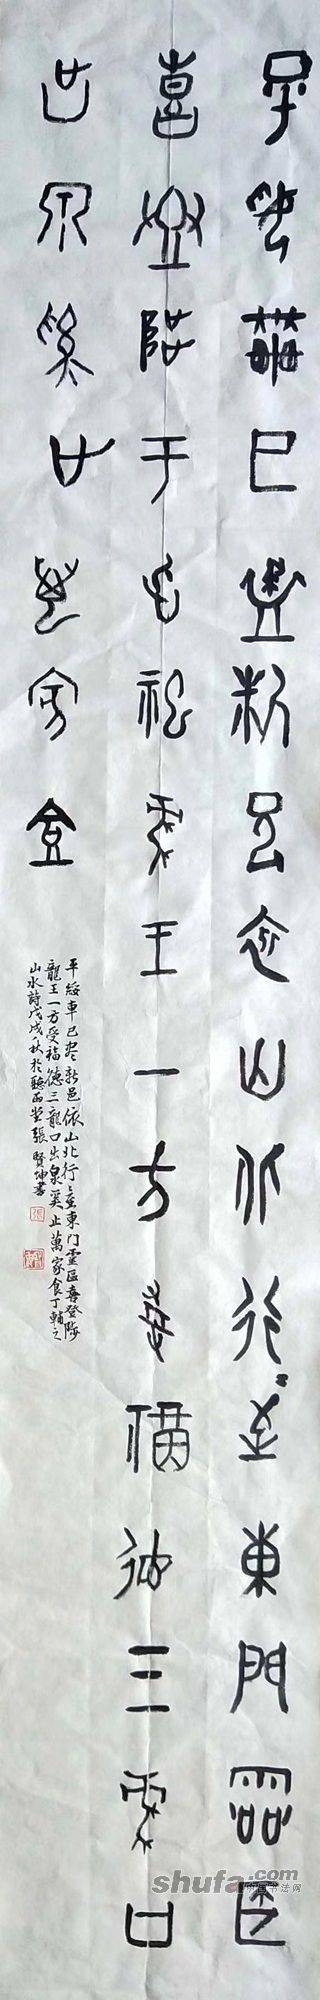 平綏車已盡新邑依山北行至東門靈區
喜登陟于祀龍王一方受福德三龍口
出泉奚止萬家食
平綏車已盡新邑依山北行至東門靈區喜登陟
龍王一方受福德三龍口出泉奚止萬家食丁輔之
山水詩戊戌秋於聽雨堂張賢坤書
shufa.com
中国书法网